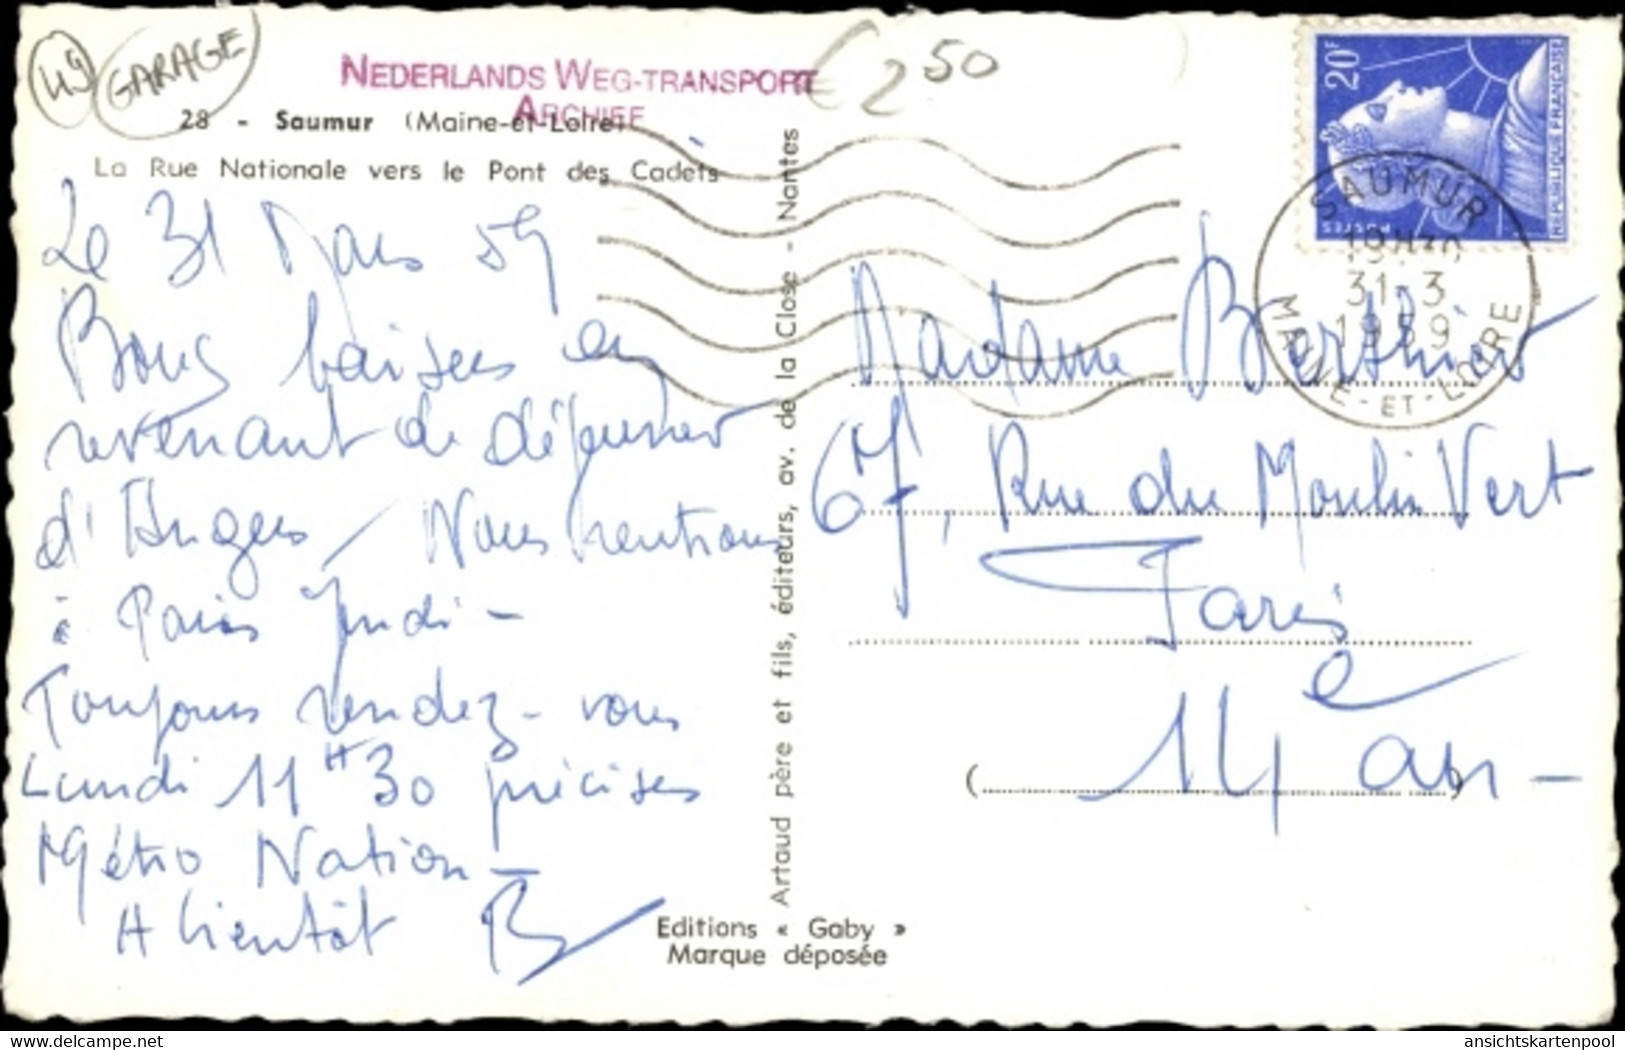 49
GARAGE
NEDERLANDS WEG-TRANSPORT
ARCHIEF
€ 2 50
28 - Saumur (Maine-et-Loire)
La Rue Nationale vers le Pont des Cadets
Le 31 Mars 59
Bons baisers en
revenant de déjeuner
d'Angers / Nous rentrons
à Paris Jeudi -
Toujours rendez-vous
Lundi 11 H 30 précises
Métro Nation -
A bientôt B
Artaud père et fils, éditeurs, av. de la Close - Nantes
Editions « Gaby »
Marque déposée
20F
REPUBLIQUE FRANÇAISE
POSTES
SAUMUR
19H30
31-3
1959
MAINE-ET-LOIRE
Madame Berthier
67, Rue du Moulin Vert
Paris
14e arr -
ansichtskartenpool